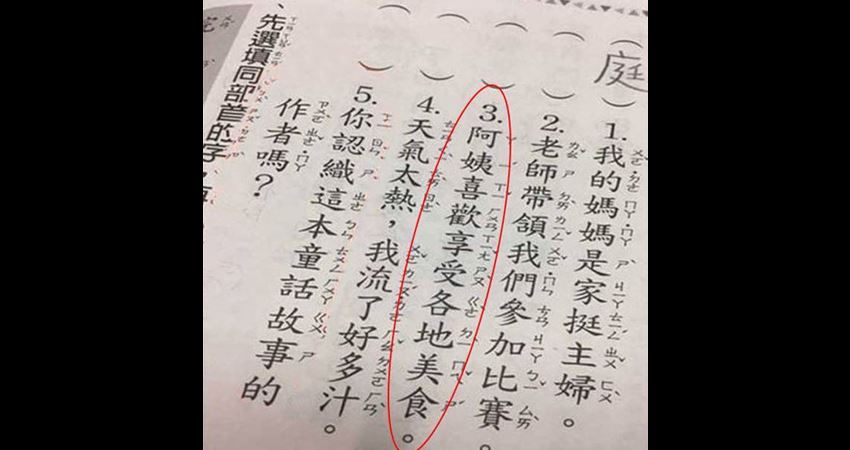 （庭）1.我的媽媽是家挺主婦。
（　）2.老師帶領我們參加比賽。
（　）3.阿姨喜歡享受各地美食。
（　）4.天氣太熱，我流了好多汁。
（　）5.你認織這本童話故事的
作者嗎？
、先選填同部首的字，再